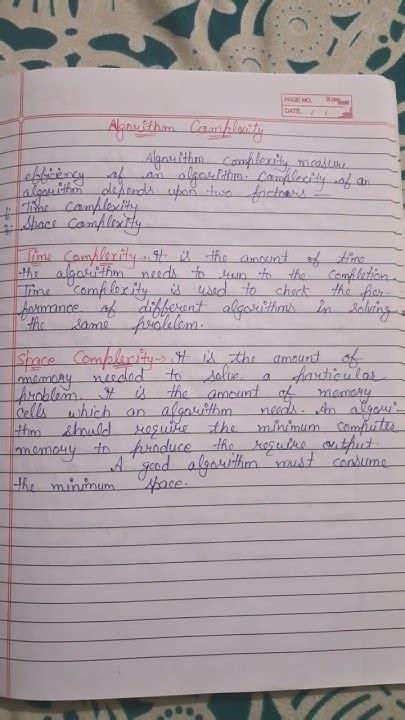 PAGE NO.
DATE / /
Algorithm Complexity
Algorithm complexity measure
efficiency of an algorithm. Complexity of an
algorithm depends upon two factors —
1. Time Complexity
2. Space Complexity
Time Complexity → It is the amount of time
the algorithm needs to run to the completion.
Time complexity is used to check the per-
formance of different algorithms in solving
the same problem.
Space Complexity → It is the amount of
memory needed to solve a particular
problem. It is the amount of memory
cells which an algorithm needs. An algori-
thm should require the minimum computer
memory to produce the require output.
A good algorithm must consume
the minimum space.